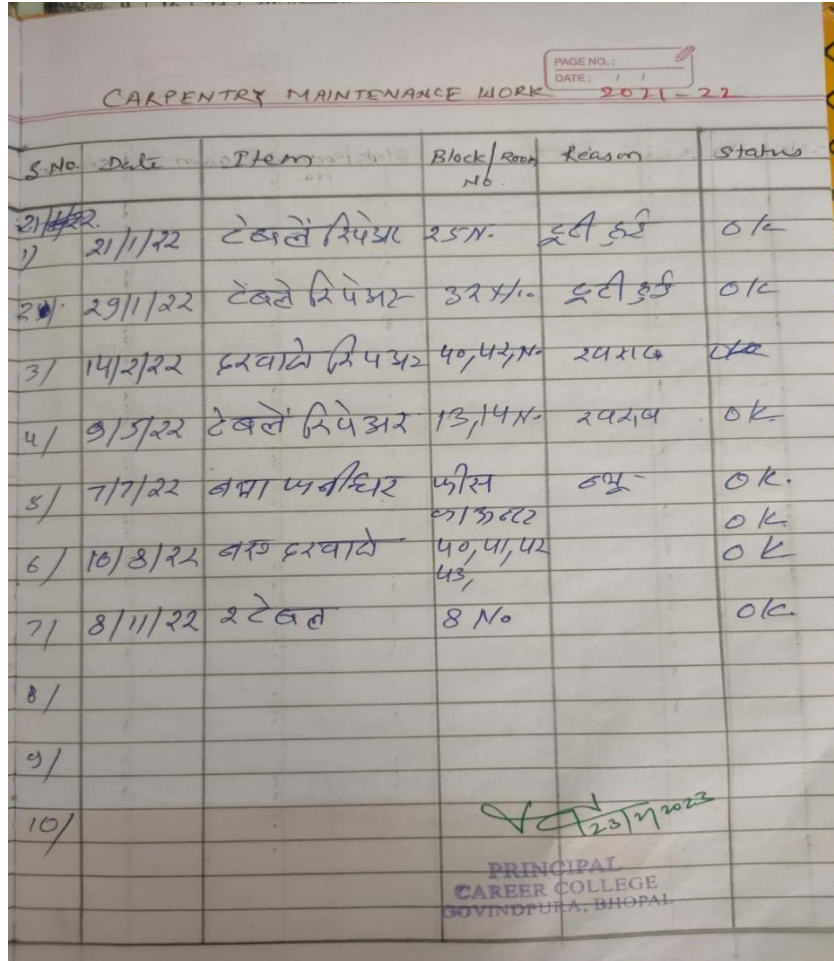 PAGE NO.:
DATE: / /
CARPENTRY MAINTENANCE WORK 2021-22
S.No. Date Item Block/Room No. Reason Status
21/1/22.
1) 21/1/22 टेबलें रिपेअर 25 N. टूटी हुई OK
2/ 29/1/22 टेबले रिपेअर 32 टूटी हुई OK
3/ 14/2/22 दरवाजे रिपअर 40,42,N. खराब OK
4/ 9/5/22 टेबलें रिपेअर 13,14 N. खराब OK
5/ 7/7/22 नया फर्नीचर फीस न्यू- OK.
काऊन्टर OK
6/ 10/8/22 नए दरवाजे 40,41,42 OK
43,
7/ 8/11/22 2 टेबल 8 No OK.
8/
9/
10/
23/2/2023
PRINCIPAL
CAREER COLLEGE
GOVINDPURA, BHOPAL